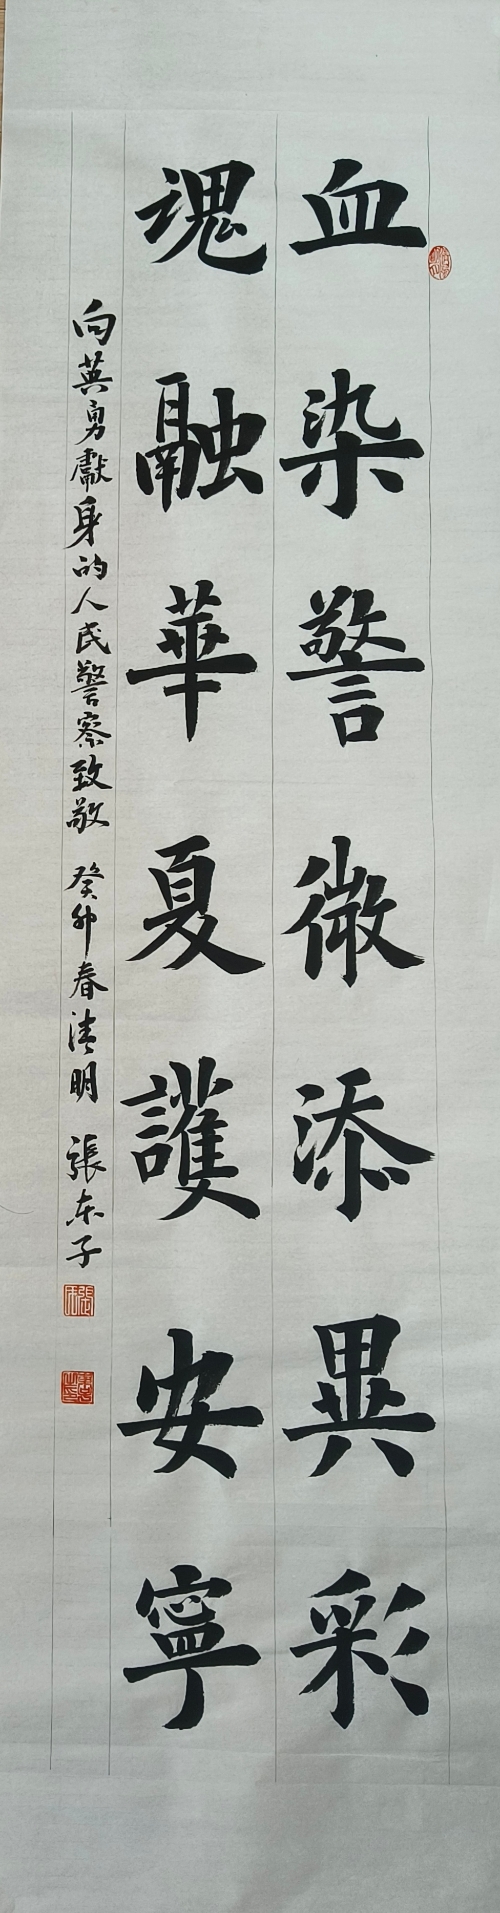 血染警徽添異彩
魂融華夏護安寧
向英勇獻身的人民警察致敬 癸卯春清明 張东子